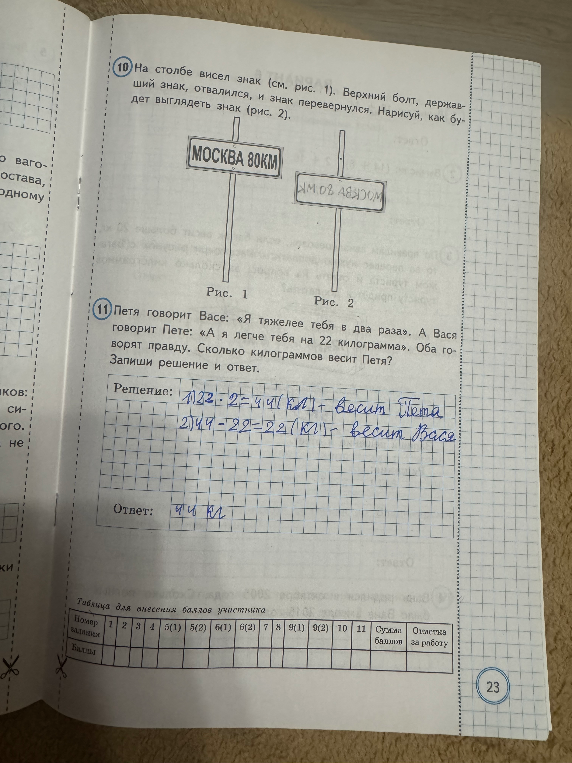 о ваго-
остава,
одному
ков:
си-
ого.
не
ки
10 На столбе висел знак (см. рис. 1). Верхний болт, держав-
ший знак, отвалился, и знак перевернулся. Нарисуй, как бу-
дет выглядеть знак (рис. 2).
МОСКВА 80КМ
МОСКВА 80 КМ
Рис. 1
Рис. 2
11 Петя говорит Васе: «Я тяжелее тебя в два раза». А Вася
говорит Пете: «А я легче тебя на 22 килограмма». Оба го-
ворят правду. Сколько килограммов весит Петя?
Запиши решение и ответ.
Решение: 1) 22 · 2 = 44 (кг) - весит Петя
2) 44 - 22 = 22 (кг) - весит Вася
Ответ: 44 кг
Таблица для внесения баллов участника
Номер задания 1 2 3 4 5(1) 5(2) 6(1) 6(2) 7 8 9(1) 9(2) 10 11 Сумма баллов Отметка за работу
Баллы
23